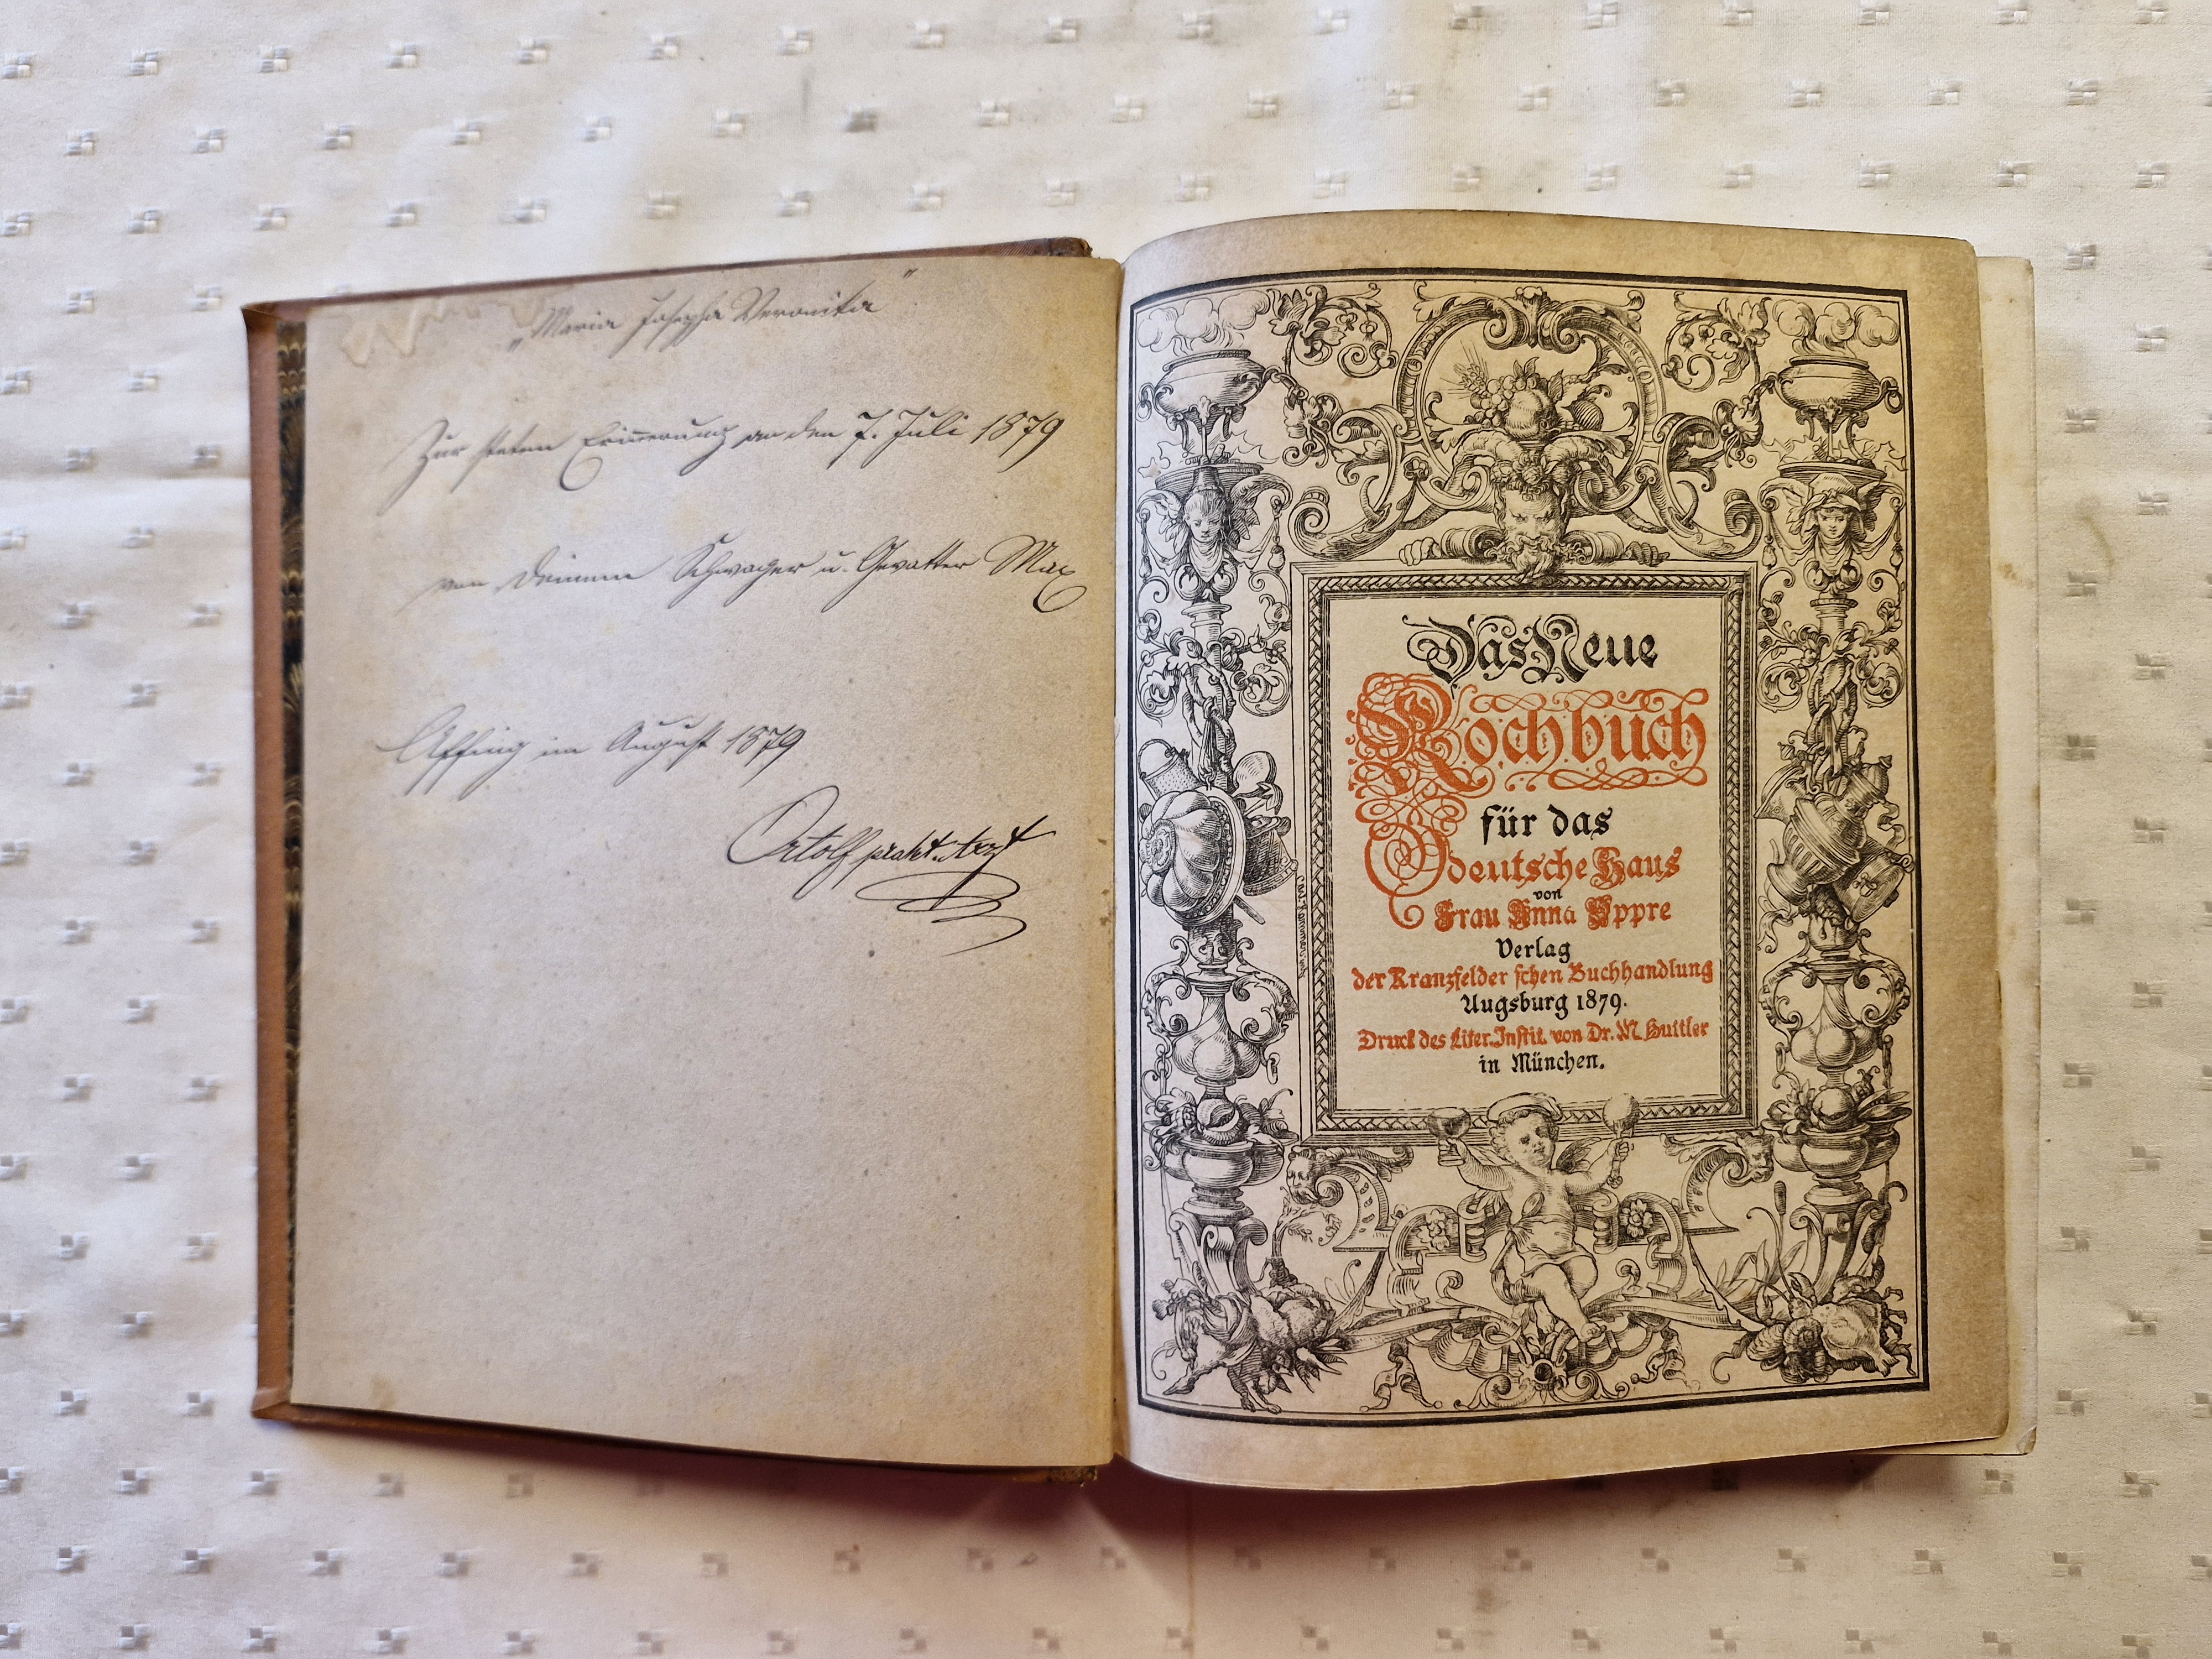 „Maria Josepha Veronika“
Zur steten Erinnerung an den 7. Juli 1879
von Deinem Schwager u. Gevatter Max
Affing im August 1879
Ortolf prakt. Arzt
Das Neue
Kochbuch
für das
deutsche Haus
von
Frau Anna Yppre
Verlag
der Kranzfelder'schen Buchhandlung
Augsburg 1879.
Druck des Liter. Instit. von Dr. M. Huttler
in München.